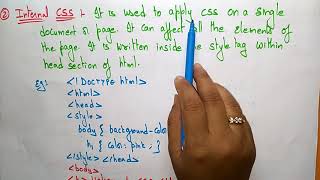 ② Internal CSS :- It is used to apply CSS on a single
document or page. It can affect all the elements of
the page. It is written inside the style tag within
head section of html.
Eg:- <! DOCTYPE html>
<html>
<head>
<style>
body { background-color
h1 { color: pink; }
</style> </head>
<body>